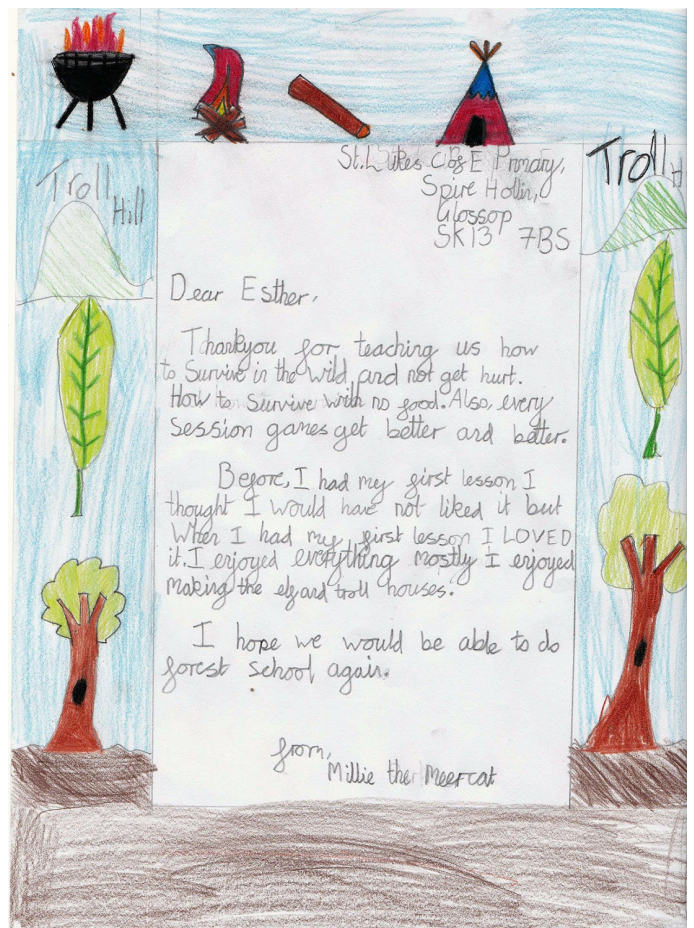 St. Lukes C of E Primary,
Spire Hollin,
Glossop
SK13 7BS
Troll
Hill
Troll
H
Dear Esther,
Thankyou for teaching us how
to Survive in the wild and not get hurt.
How to Survive with no food. Also, every
Session games get better and better.
Before, I had my first lesson I
thought I would have not liked it but
When I had my first lesson I LOVED
it. I enjoyed everything mostly I enjoyed
Making the elf and troll houses.
I hope we would be able to do
forest school again.
from,
Millie the Meercat